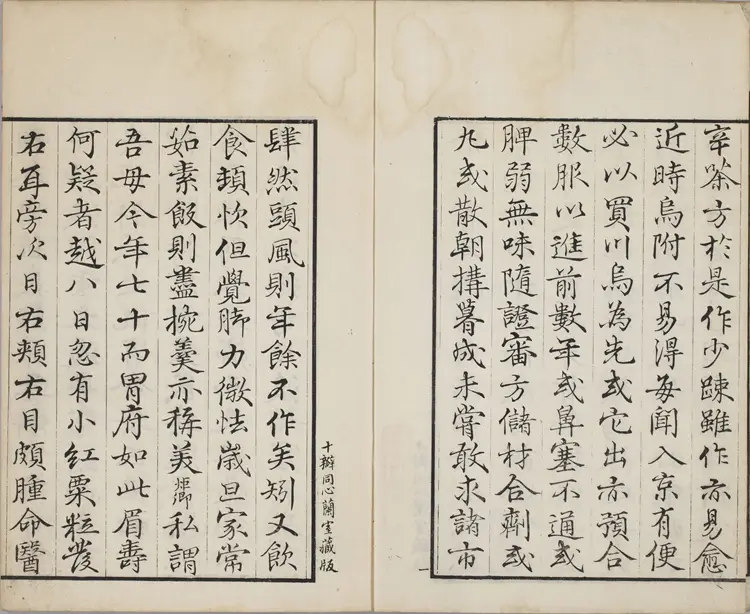 辛茶方於是作少踈雖作亦易愈
近時烏附不易得每聞入京有便
必以買川烏為先或它出亦預合
數服以進前數年或鼻塞不通或
脾弱無味隨證審方儲材合劑或
丸或散朝搆暮成未嘗敢求諸市
肆然頭風則年餘不作矣矧又飲
食頗快但覺脚力微怯歲旦家常
茹素飯則盡捥羹亦稱美炬卿私謂
吾母今年七十而胃府如此眉壽
何疑者越八日忽有小紅粟粒發
右耳旁次日右頰右目頗腫命醫
十瓣同心蘭室藏版
一